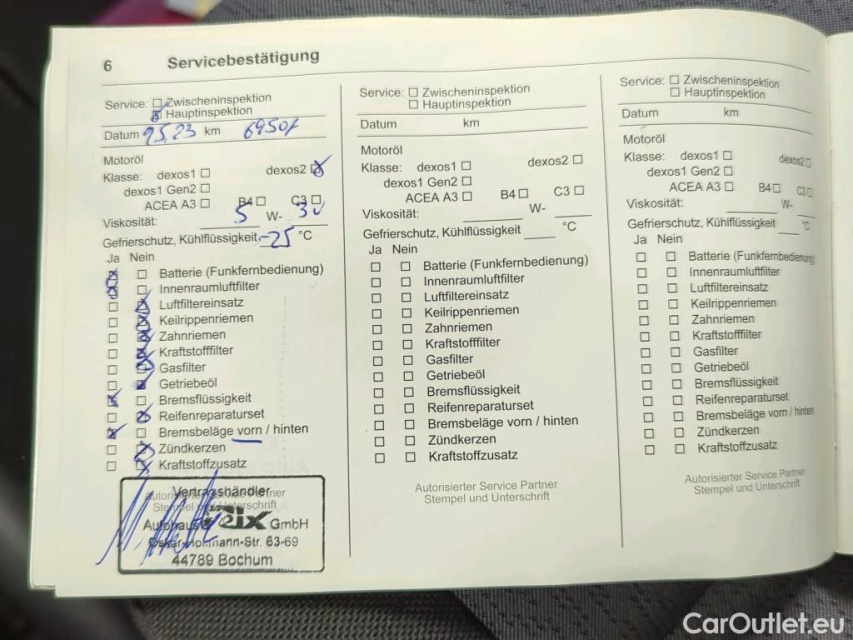 6 Servicebestätigung
Service: Zwischeninspektion
Hauptinspektion
Datum 9.5.23 km 69507
Motoröl
Klasse: dexos1 dexos2
dexos1 Gen2
ACEA A3 B4 C3
Viskosität: 5 W- 30
Gefrierschutz, Kühlflüssigkeit -25 °C
Ja Nein
Batterie (Funkfernbedienung)
Innenraumluftfilter
Luftfiltereinsatz
Keilrippenriemen
Zahnriemen
Kraftstofffilter
Gasfilter
Getriebeöl
Bremsflüssigkeit
Reifenreparaturset
Bremsbeläge vorn / hinten
Zündkerzen
Kraftstoffzusatz
Autorisierter Service Partner
Stempel und Unterschrift
Vertragshändler
Autohaus GmbH
-Str. 63-69
44789 Bochum
Service: Zwischeninspektion
Hauptinspektion
Datum km
Motoröl
Klasse: dexos1 dexos2
dexos1 Gen2
ACEA A3 B4 C3
Viskosität: W-
Gefrierschutz, Kühlflüssigkeit °C
Ja Nein
Batterie (Funkfernbedienung)
Innenraumluftfilter
Luftfiltereinsatz
Keilrippenriemen
Zahnriemen
Kraftstofffilter
Gasfilter
Getriebeöl
Bremsflüssigkeit
Reifenreparaturset
Bremsbeläge vorn / hinten
Zündkerzen
Kraftstoffzusatz
Autorisierter Service Partner
Stempel und Unterschrift
Service: Zwischeninspektion
Hauptinspektion
Datum km
Motoröl
Klasse: dexos1 dexos2
dexos1 Gen2
ACEA A3 B4 C3
Viskosität: W-
Gefrierschutz, Kühlflüssigkeit °C
Ja Nein
Batterie (Funkfernbedienung)
Innenraumluftfilter
Luftfiltereinsatz
Keilrippenriemen
Zahnriemen
Kraftstofffilter
Gasfilter
Getriebeöl
Bremsflüssigkeit
Reifenreparaturset
Bremsbeläge vorn / hinten
Zündkerzen
Kraftstoffzusatz
Autorisierter Service Partner
Stempel und Unterschrift
CarOutlet.eu